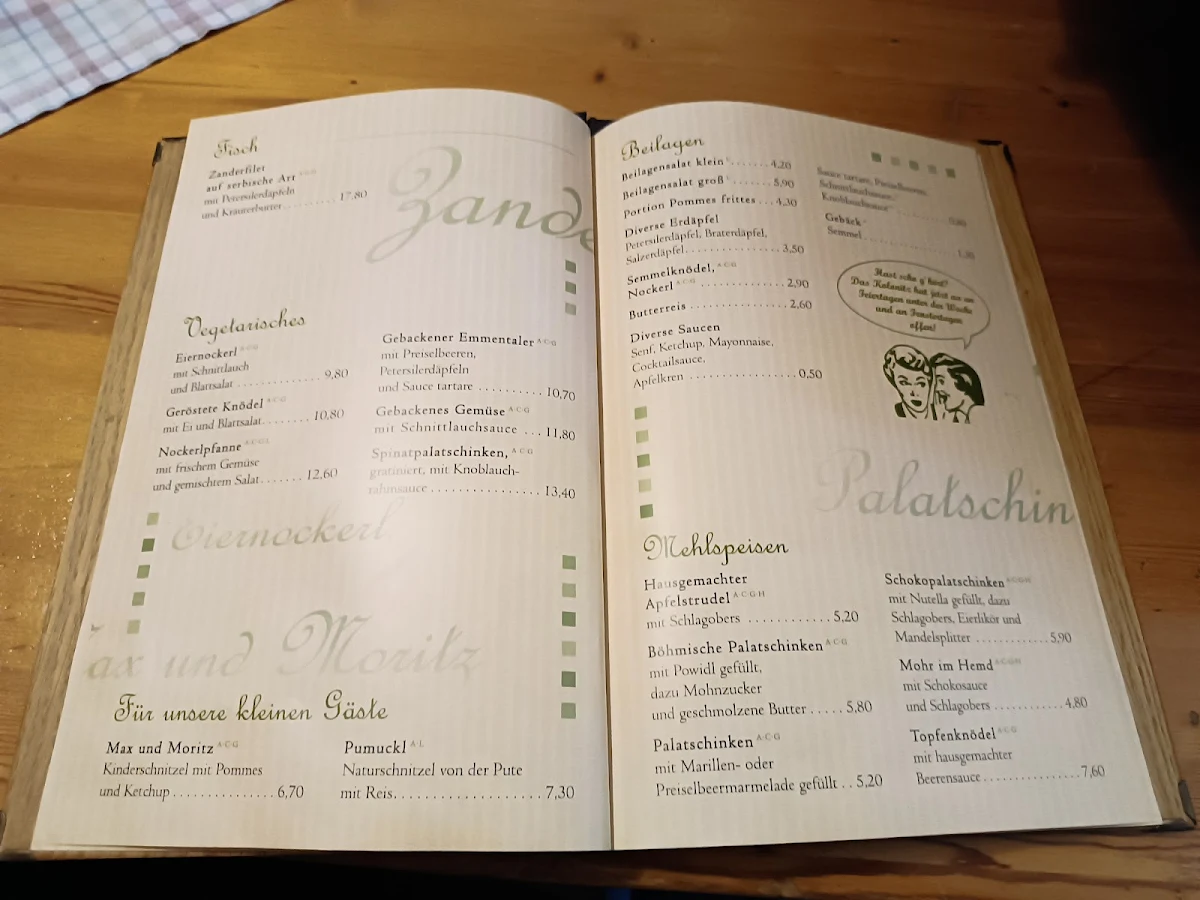 Fisch
Zanderfilet
auf serbische Art
mit Petersilerdäpfeln
und Kräuterbutter .......... 17,80
Zande
Vegetarisches
Eiernockerl A C G
mit Schnittlauch
und Blattsalat ............ 9,80
Geröstete Knödel A C G
mit Ei und Blattsalat ........ 10,80
Nockerlpfanne
mit frischem Gemüse
und gemischtem Salat ....... 12,60
Gebackener Emmentaler A C G
mit Preiselbeeren,
Petersilerdäpfeln
und Sauce tartare ........ 10,70
Gebackenes Gemüse A C G
mit Schnittlauchsauce ... 11,80
Spinatpalatschinken, A C G
gratiniert, mit Knoblauch-
rahmsauce .............. 13,40
Eiernockerl
ax und Moritz
Für unsere kleinen Gäste
Max und Moritz A C G
Kinderschnitzel mit Pommes
und Ketchup ............... 6,70
Pumuckl A L
Naturschnitzel von der Pute
mit Reis...................... 7,30
Beilagen
Beilagensalat klein ........ 4,20
Beilagensalat groß ....... 5,90
Portion Pommes frittes ... 4,30
Diverse Erdäpfel
Petersilerdäpfel, Braterdäpfel,
Salzerdäpfel ............... 3,50
Semmelknödel, A C G
Nockerl A C G .............. 2,90
Butterreis ................ 2,60
Diverse Saucen
Senf, Ketchup, Mayonnaise,
Cocktailsauce,
Apfelkren ................. 0,50
Sauce tartare, Preiselbeeren,
Schnittlauchsauce,
Knoblauchsauce
Gebäck
Semmel
Hast scho g'hört?
Das Kolonitz hat jetzt an
Feiertagen unter der Woche
und an Fenstertagen
offen!
Palatschin
Mehlspeisen
Hausgemachter
Apfelstrudel A C G H
mit Schlagobers ............ 5,20
Böhmische Palatschinken A C G
mit Powidl gefüllt,
dazu Mohnzucker
und geschmolzene Butter ..... 5,80
Palatschinken A C G
mit Marillen- oder
Preiselbeermarmelade gefüllt .. 5,20
Schokopalatschinken
mit Nutella gefüllt, dazu
Schlagobers, Eierlikör und
Mandelsplitter ............ 5,90
Mohr im Hemd
mit Schokosauce
und Schlagobers ............ 4,80
Topfenknödel A C G
mit hausgemachter
Beerensauce ............... 7,60